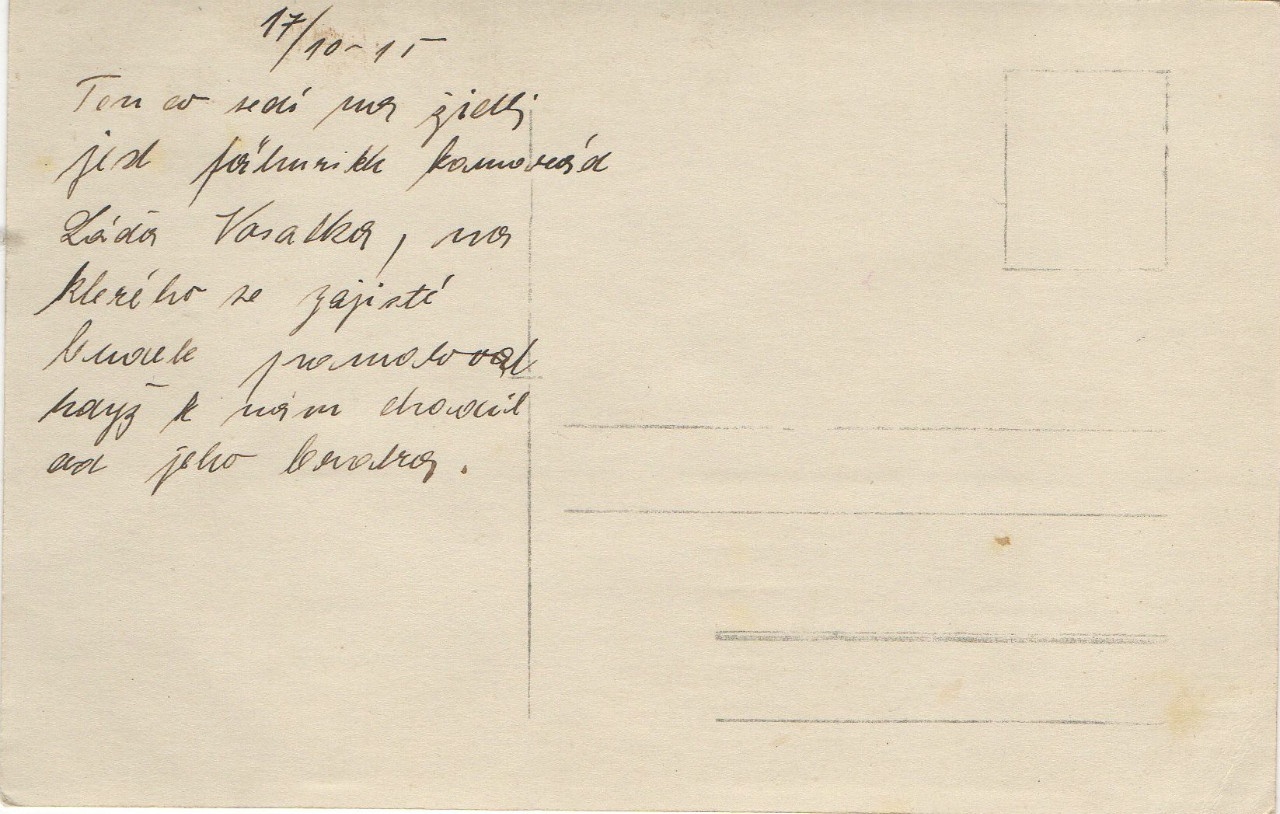 17/10-15
Ten co sedí na židlj
jest fähnrikk kamarád
Láďa Vosatka, na
kterého se zajisté
budete pamatovat
když k nám chodil
od jeho bratra.